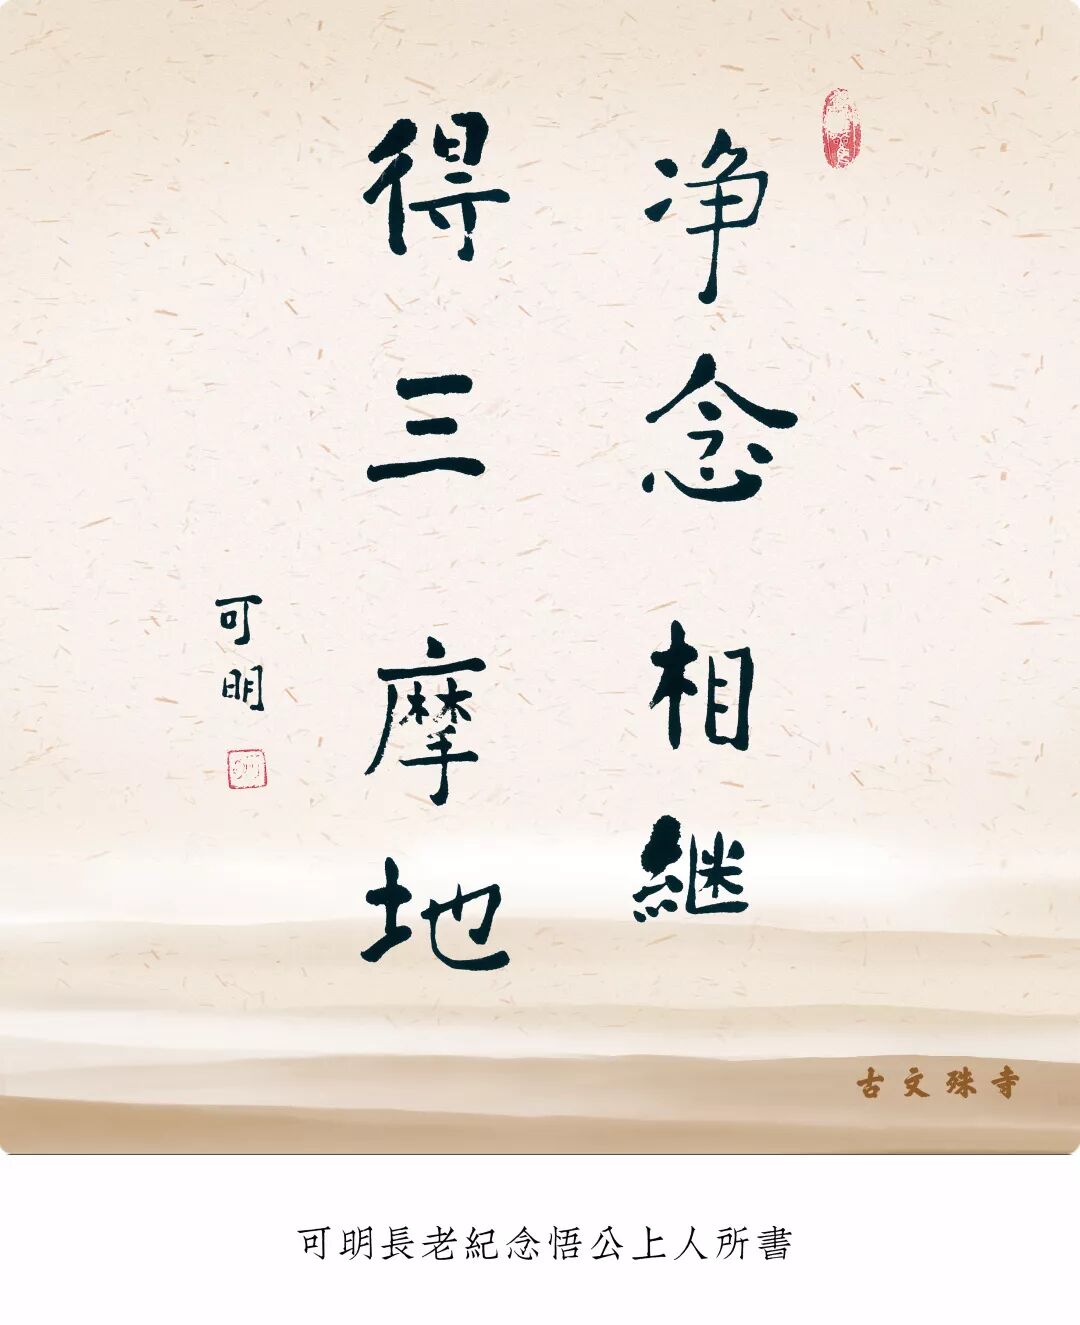 净念相继
得三摩地
可明
古文殊寺
可明長老紀念悟公上人所書